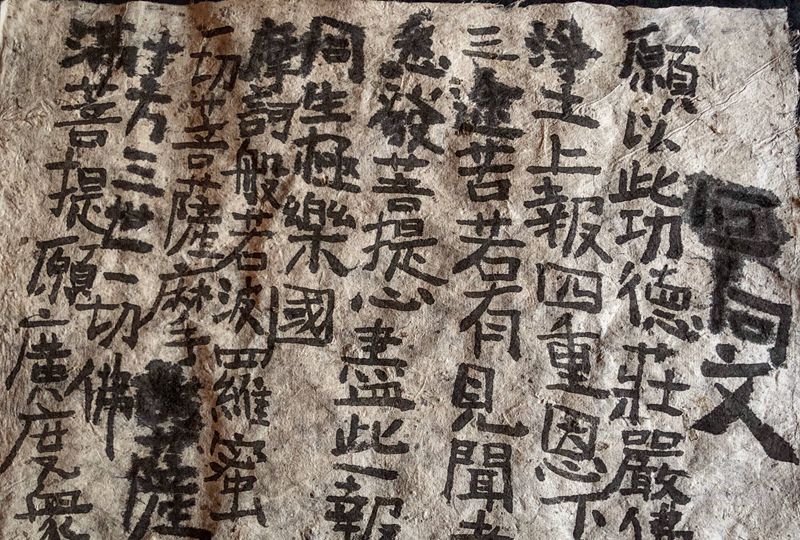 回向文
願以此功德莊嚴佛
淨土上報四重恩下
三途苦若有見聞者
悉發菩提心盡此一報
同生極樂國
摩訶般若波羅蜜
一切菩薩摩薩
十方三世一切佛
滿菩提願廣度衆